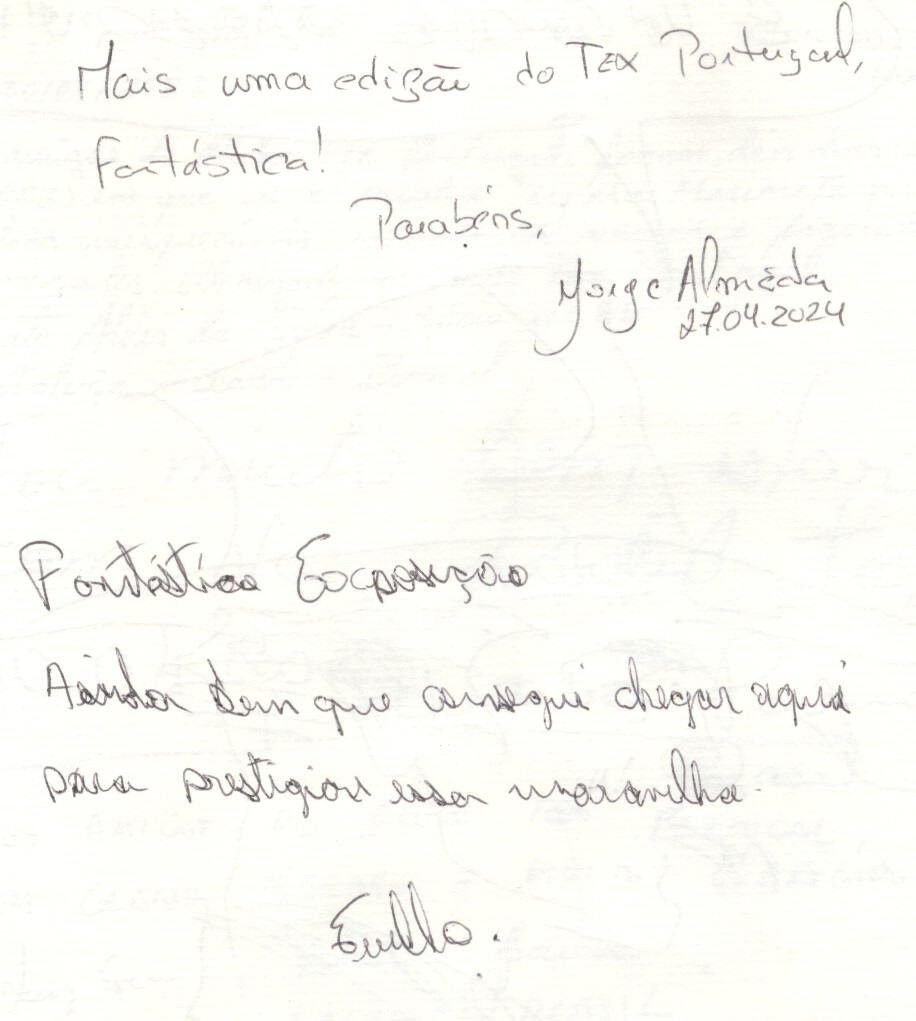 Mais uma edição do Tex Portugal,
fantástica!
Parabéns,
Jorge Almeida
27.04.2024
Fantástica Exposição
Ainda bem que consegui chegar aqui
para prestigiar essa maravilha.